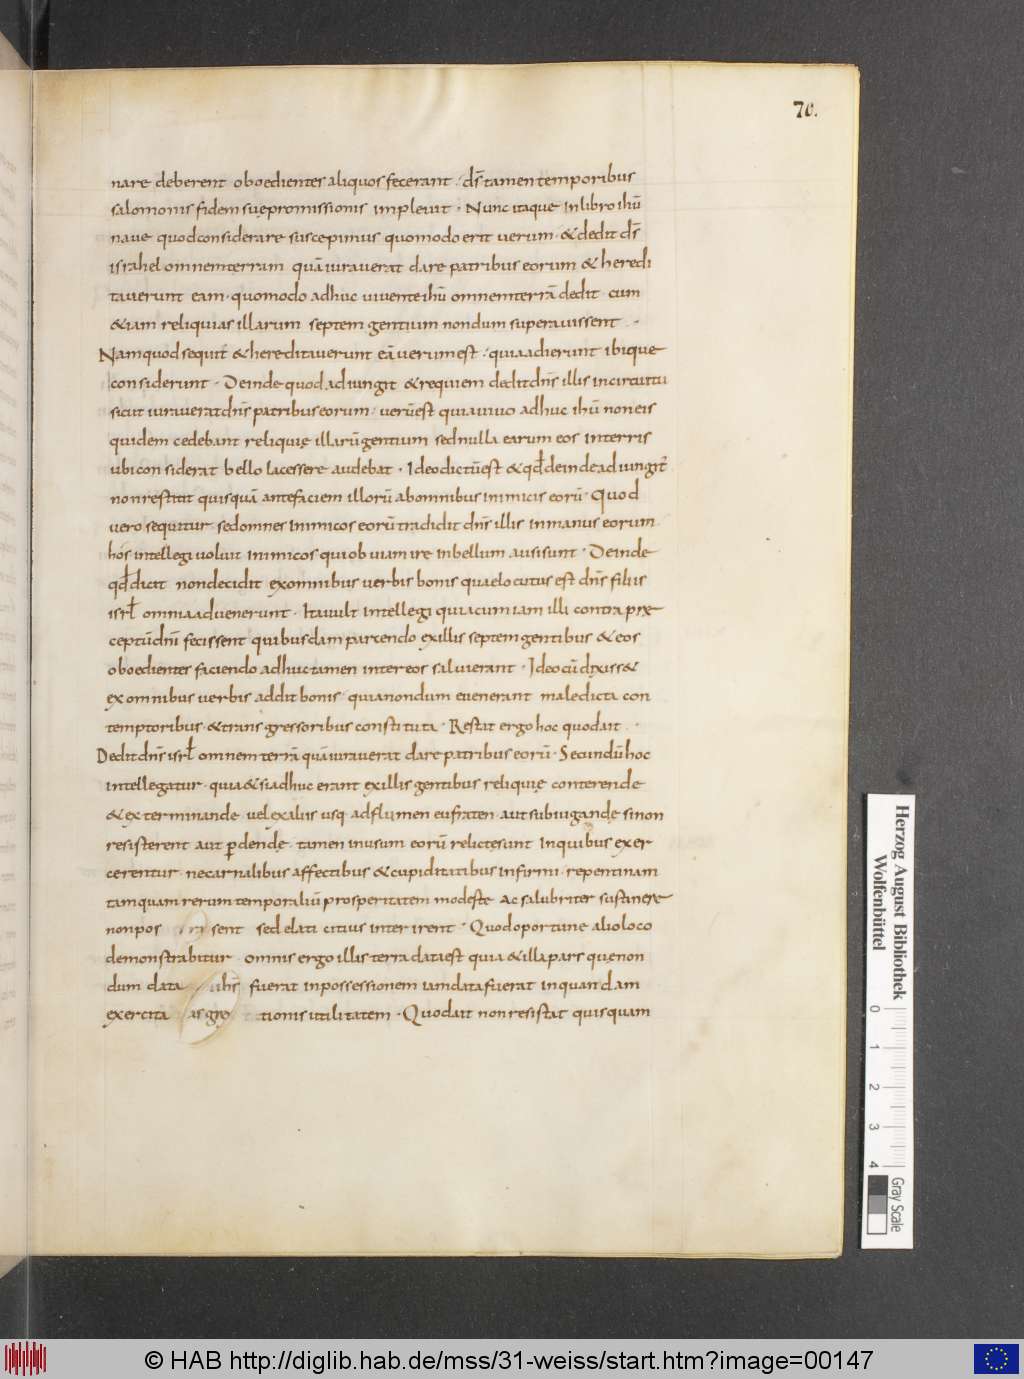 70.
nare deberent oboedientes aliquos fecerant · ds̄ tamen temporibus
salomonis fidem suę promissionis impleuit · Nunc itaque in libro ihū
naue quod considerare suscepimus quomodo erit uerum · & dedit ds̄
israhel omnem terram quā iurauerat dare patribus eorum & heredi
tauerunt eam · quomodo adhuc uiuente ihū omnem terrā dedit · cum
& iam reliquias illarum septem gentium nondum superauissent ·
Nam quod sequit̄ & hereditauerunt eā uerum est · quia adierunt ibique
considerunt · Deinde quod adiungit & requiem dedit dn̄s illis in circuitu
sicut iurauerat dn̄s patribus eorum · uerū est quia uiuo adhuc ihū non eis
quidem cedebant reliquię illarū gentium sed nulla earum eos in terris
ubi considerat bello lacessere audebat · Ideo dictū est & qd̄ deinde adiungit̄
non restitit quisquā ante faciem illorū ab omnibus inimicis eorū · Quod
uero sequitur sed omnes inimicos eorū tradidit dn̄s illis in manus eorum
hos intellegi uoluit inimicos qui obuiam ire in bellum ausi sunt · Deinde
qd̄ dicit non decidit ex omnibus uerbis bonis quae locutus est dn̄s filiis
isrl̄ omnia aduenerunt · Ita uult intellegi quia cum iam illi contra pre
ceptū dn̄i fecissent quibusdam parcendo ex illis septem gentibus & eos
oboedientes faciendo adhuc tamen inter eos saluierant · Ideo cū dixiss&
ex omnibus uerbis addit bonis · quia nondum euenerant maledicta con
temptoribus · & transgressoribus constituta · Restat ergo hoc quod ait ·
Dedit dn̄s isrl̄ omnem terrā quā iurauerat dare patribus eorū · Secundū hoc
intellegatur · quia & si adhuc erant ex illis gentibus reliquię conterendę
& exterminandę uel ex aliis usq · ad flumen eufraten · aut subiugandę si non
resisterent aut ꝑdendę · tamen in usum eorū relictę sunt In quibus exer
cerentur · ne carnalibus affectibus & cupiditatibus infirmi · repentinam
tamquam rerum temporaliū prosperitatem modeste ac salubriter sustinere
non pos sent sed elati citius interirent · Quod oportune alio loco
demonstrabitur omnis ergo illis terra data est quia & illa pars quę non
dum data fuerat in possessionem iam data fuerat in quandam
exercita tionis utilitatem · Quod ait non resistat quisquam
Herzog August Bibliothek
Wolfenbüttel
0 1 2 3 4
Gray Scale
© HAB http://diglib.hab.de/mss/31-weiss/start.htm?image=00147